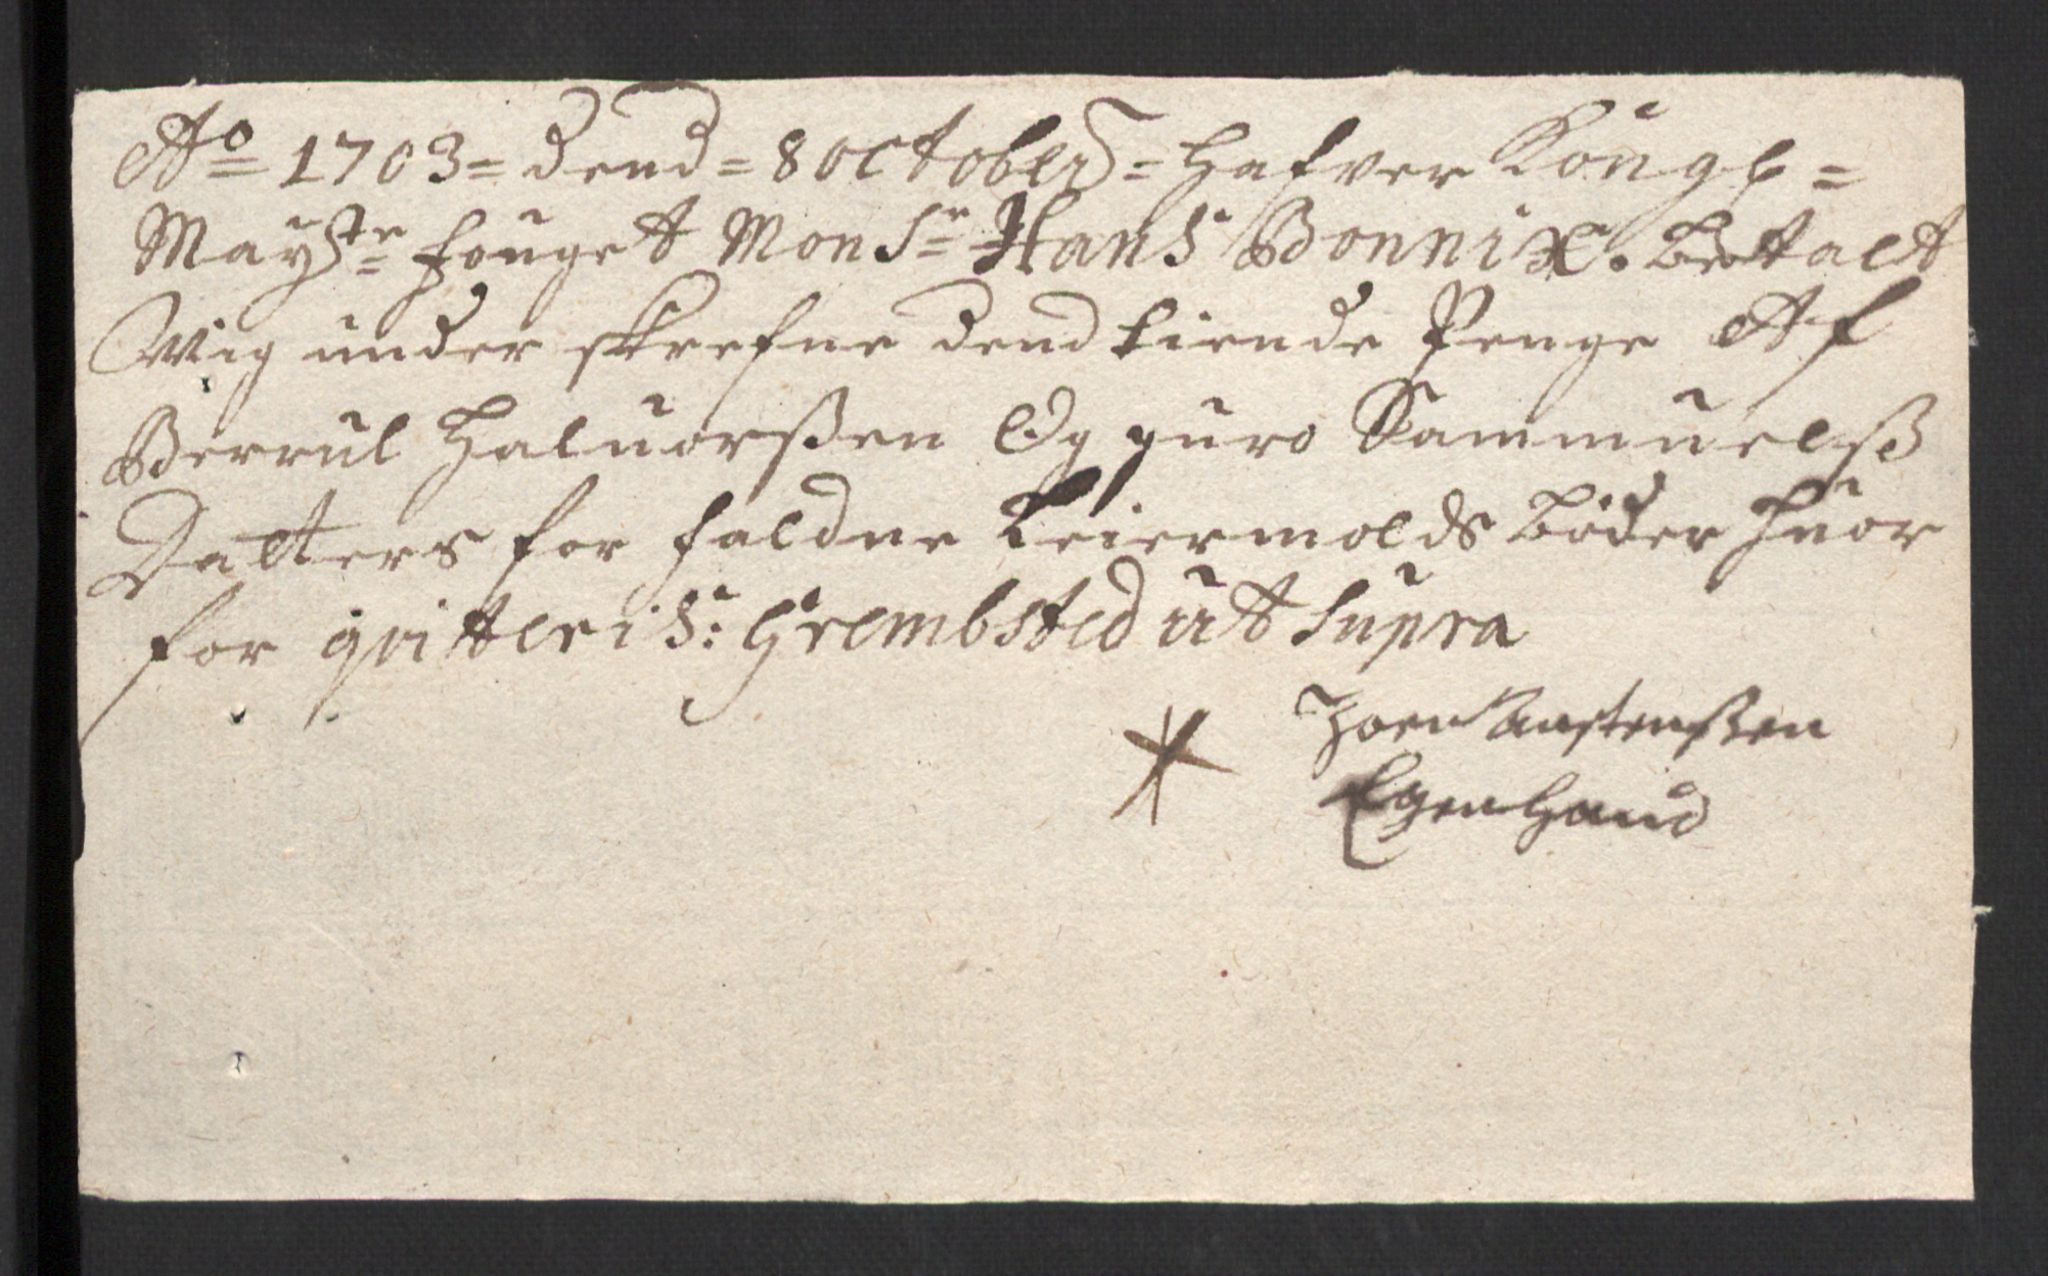 Ao 1703 = dend = 8 october = Hafver Kongl =
Mayste fouget Monsr Hans Bonnix. Betalt
Mig under skrefne dend tiende Penge Af
Berrul Haluorßen Og guro Sammuelß
Datters for faldne Leiermolds böder huor
for qvitteris: Grembsted ut supra
Egen Haand